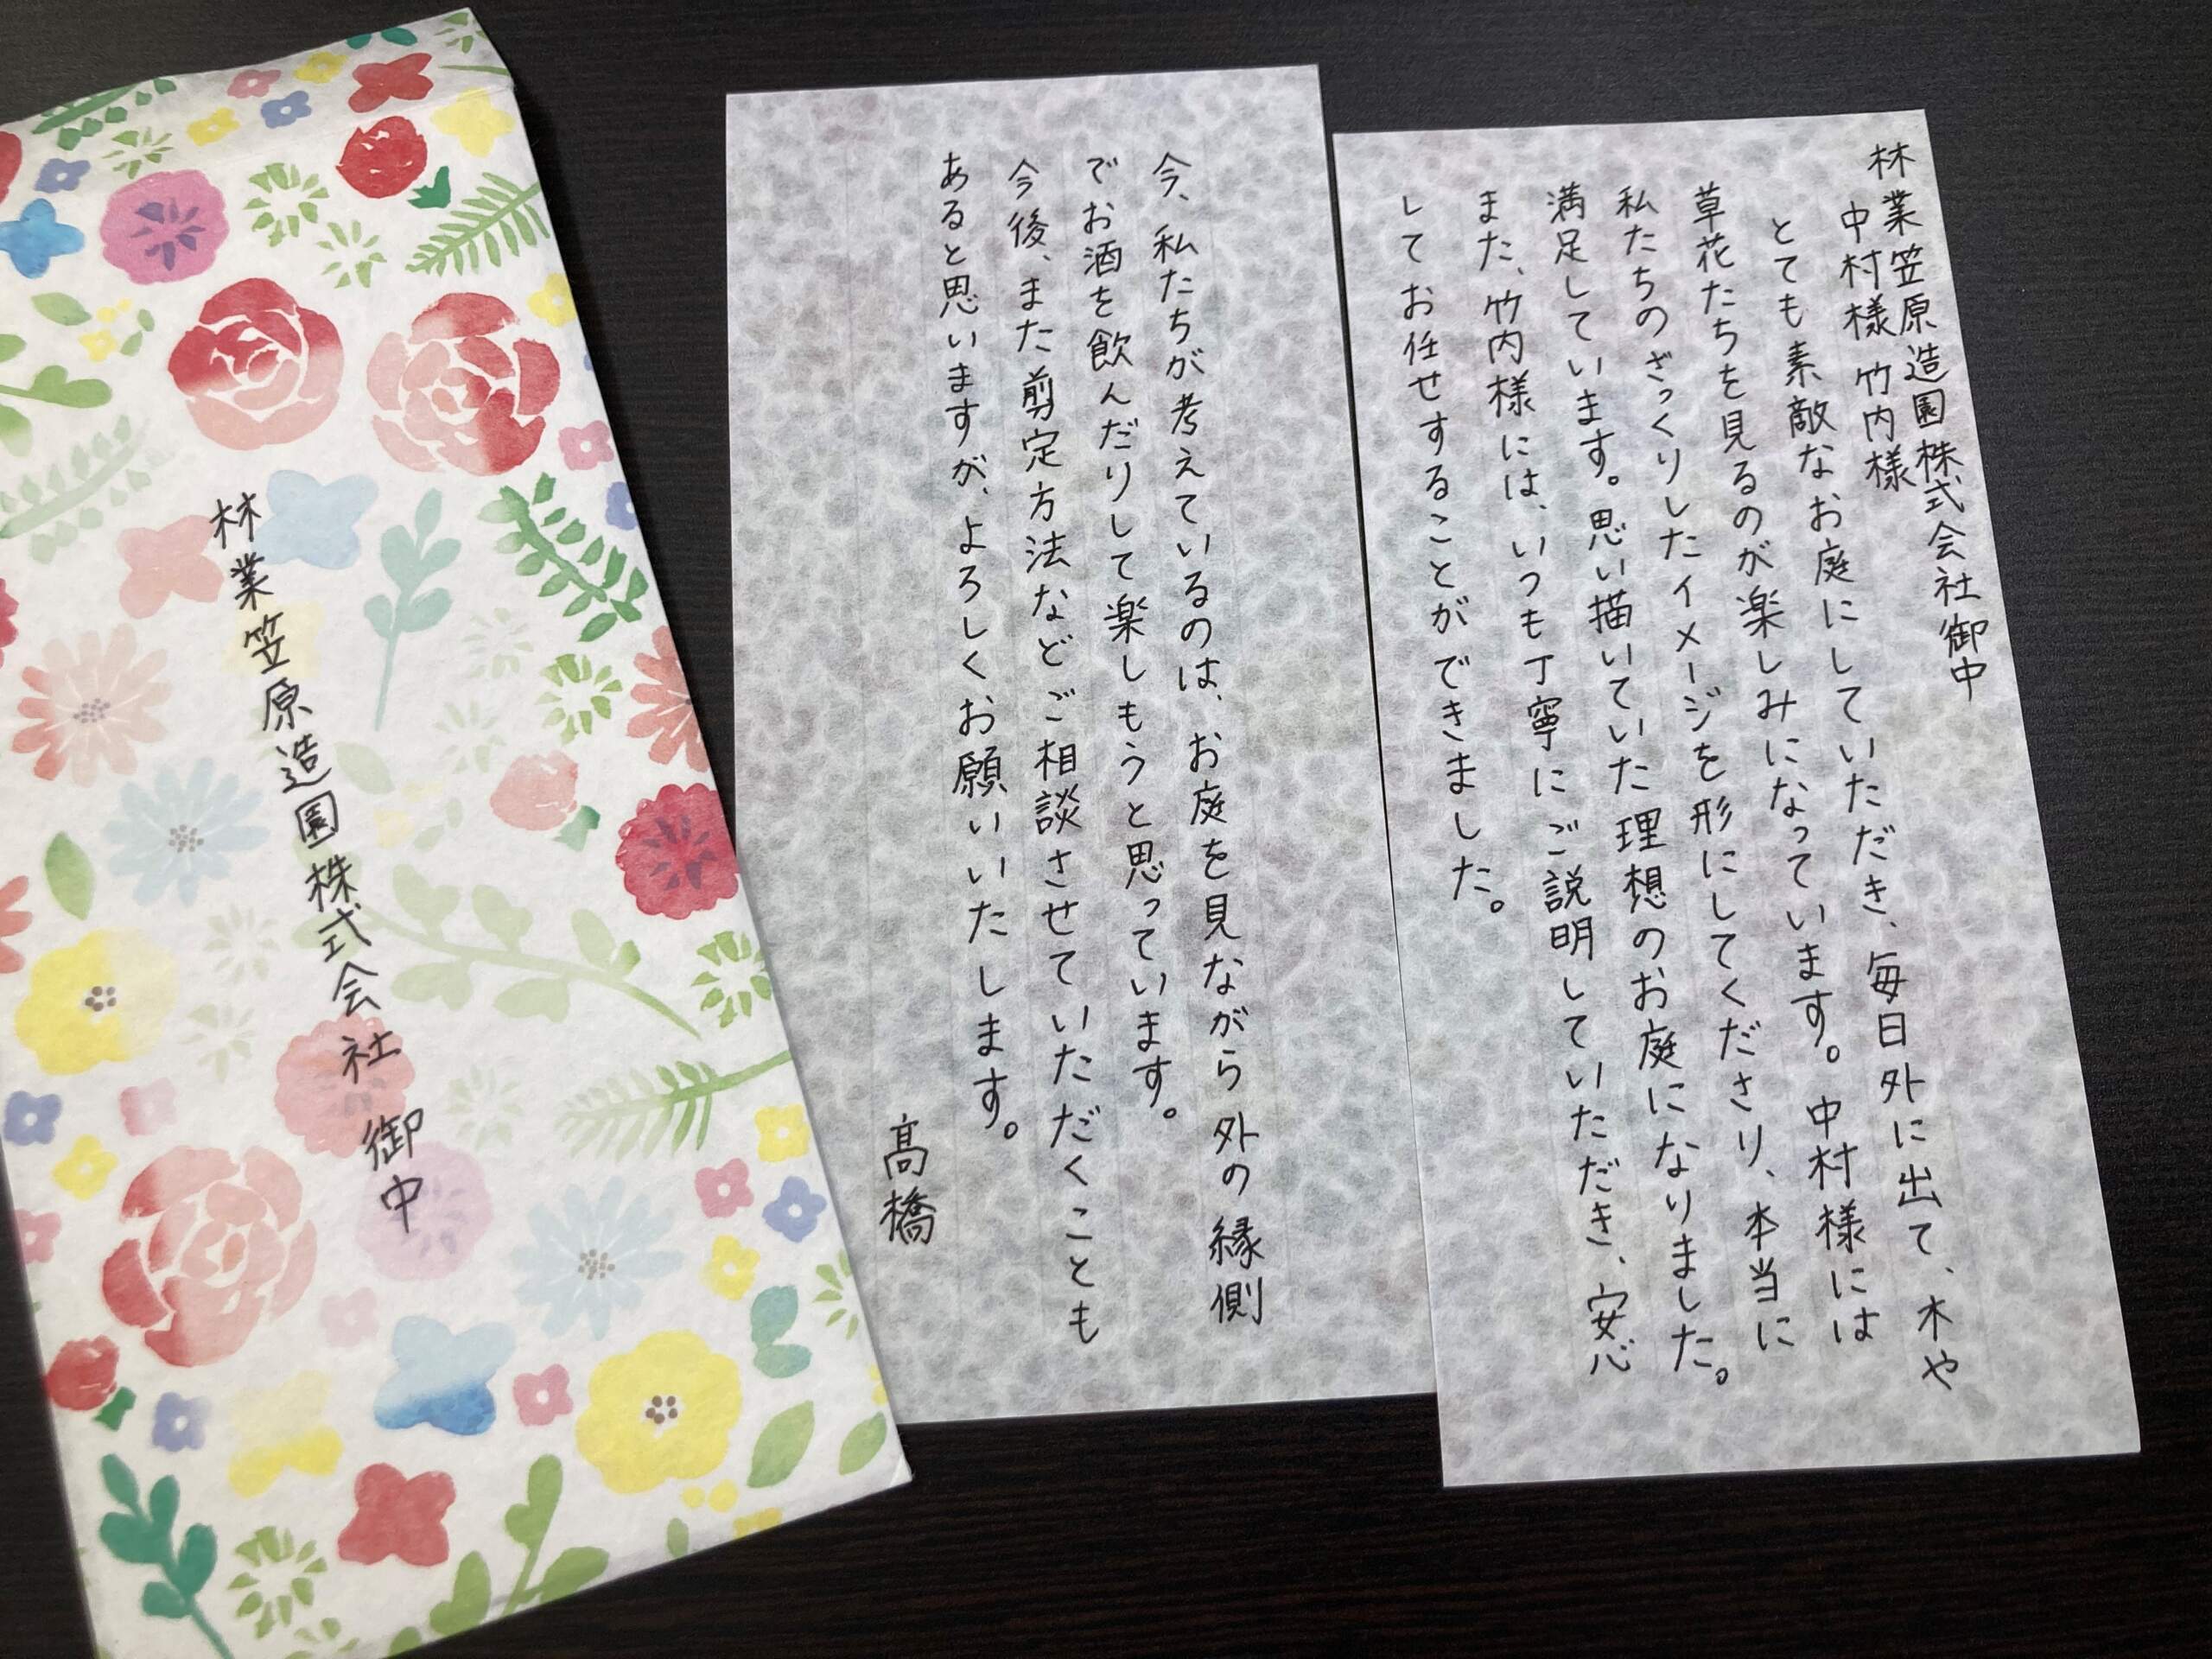 林業笠原造園株式会社御中
中村様 竹内様
とても素敵なお庭にしていただき、毎日外に出て、木や
草花たちを見るのが楽しみになっています。中村様には
私たちのざっくりしたイメージを形にしてくださり、本当に
満足しています。思い描いていた理想のお庭になりました。
また、竹内様には、いつも丁寧にご説明していただき、安心
してお任せすることができました。
今、私たちが考えているのは、お庭を見ながら外の縁側
でお酒を飲んだりして楽しもうと思っています。
今後、また剪定方法などご相談させていただくことも
あると思いますが、よろしくお願いいたします。
髙橋
林業笠原造園株式会社 御中